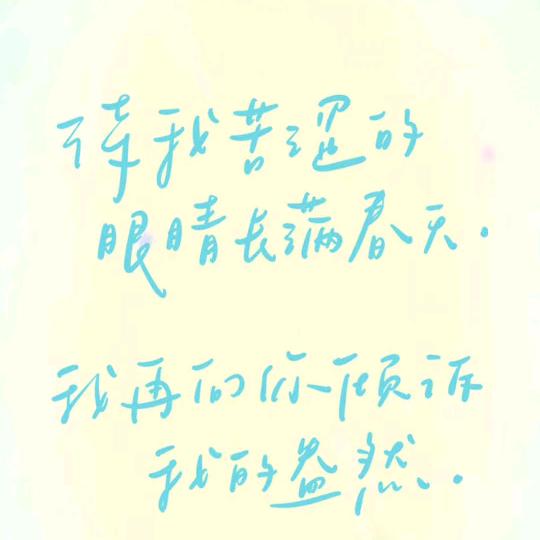 待我苦涩的
眼睛长满春天.
我再向你倾诉
我的盎然.